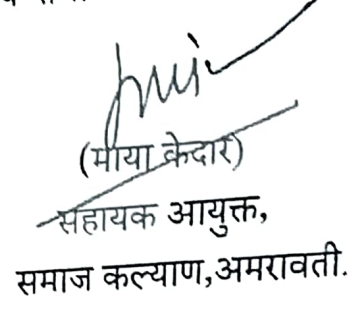 (माया केदार)
सहायक आयुक्त,
समाज कल्याण,अमरावती.